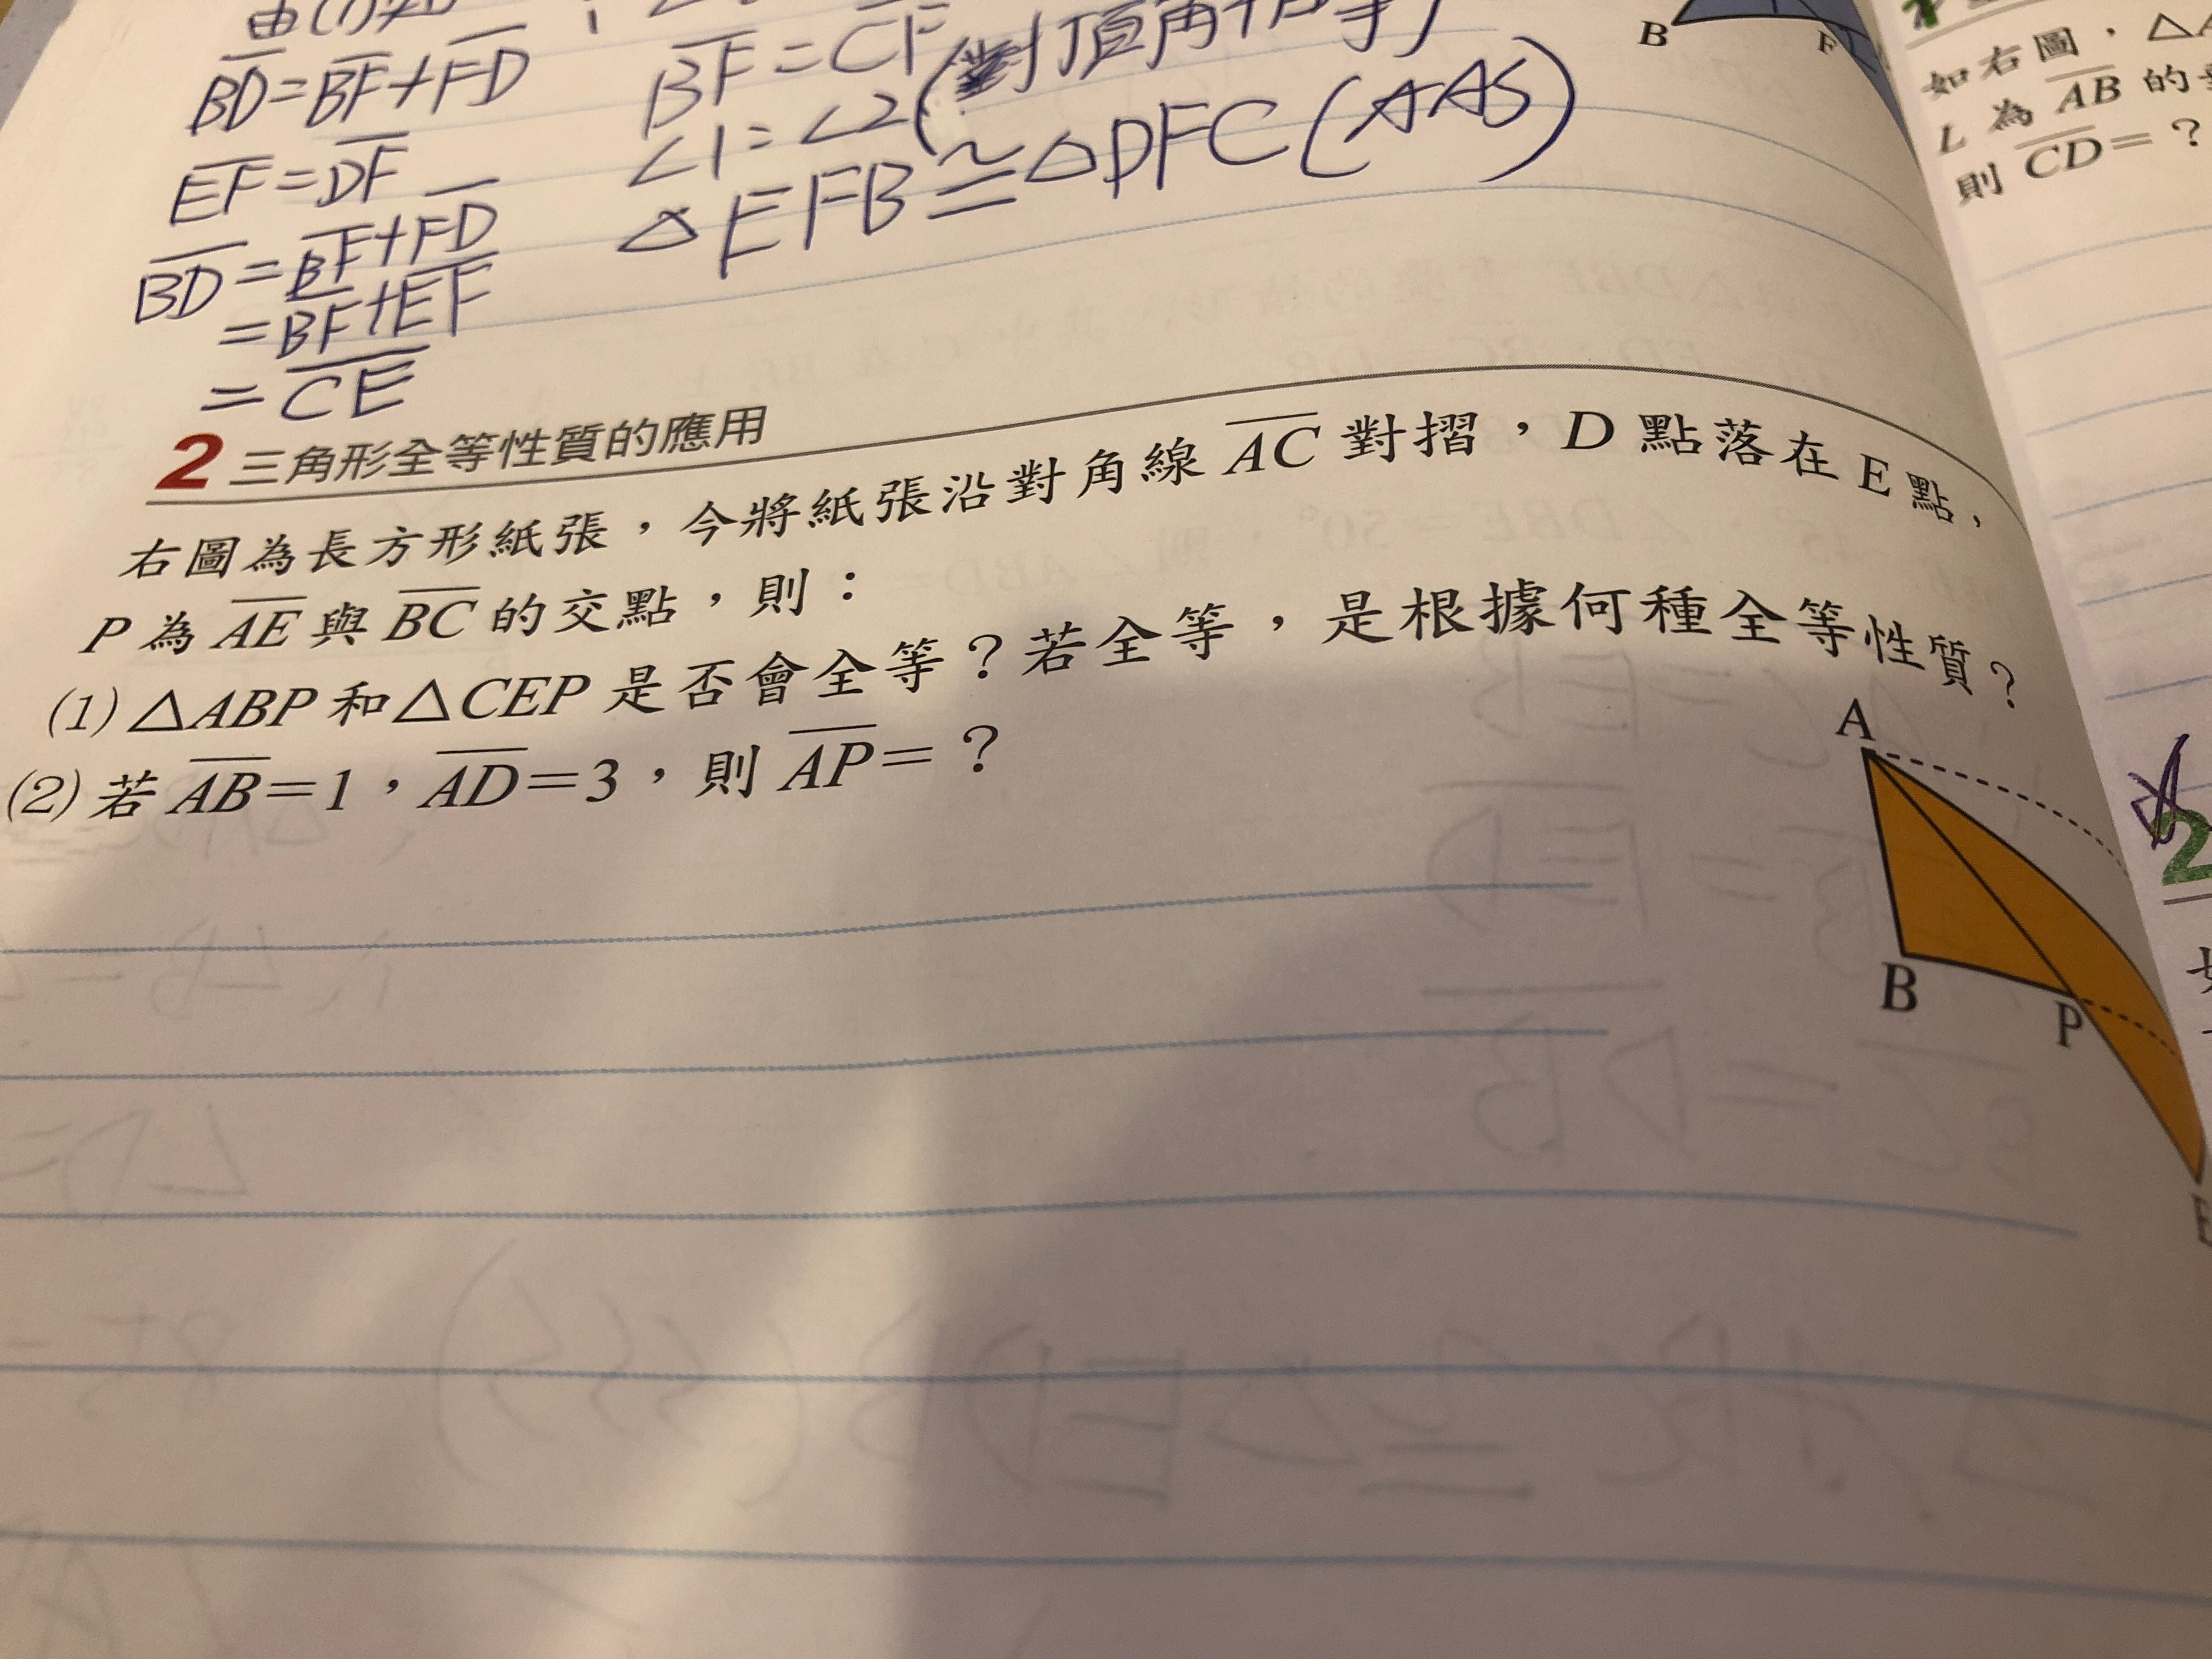 由(1)知
BD=BF+FD
EF=DF
BD=BF+FD
=BF+EF
=CE
BF=CF
∠1=∠2(對頂角相等)
△EFB≅△DFC(AAS)
B
F
2 三角形全等性質的應用
右圖為長方形紙張，今將紙張沿對角線 AC 對摺，D 點落在 E 點，
P 為 AE 與 BC 的交點，則：
(1) △ABP 和△CEP 是否會全等？若全等，是根據何種全等性質？
(2) 若 AB=1，AD=3，則 AP=？
A
B
P
E
如右圖，△
L 為 AB 的
則 CD=？
2